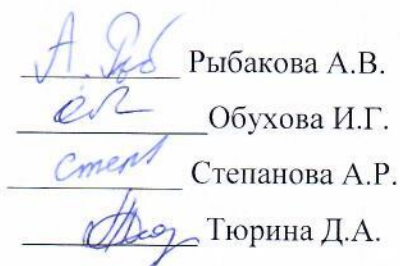 Рыбакова А.В.
Обухова И.Г.
Степанова А.Р.
Тюрина Д.А.